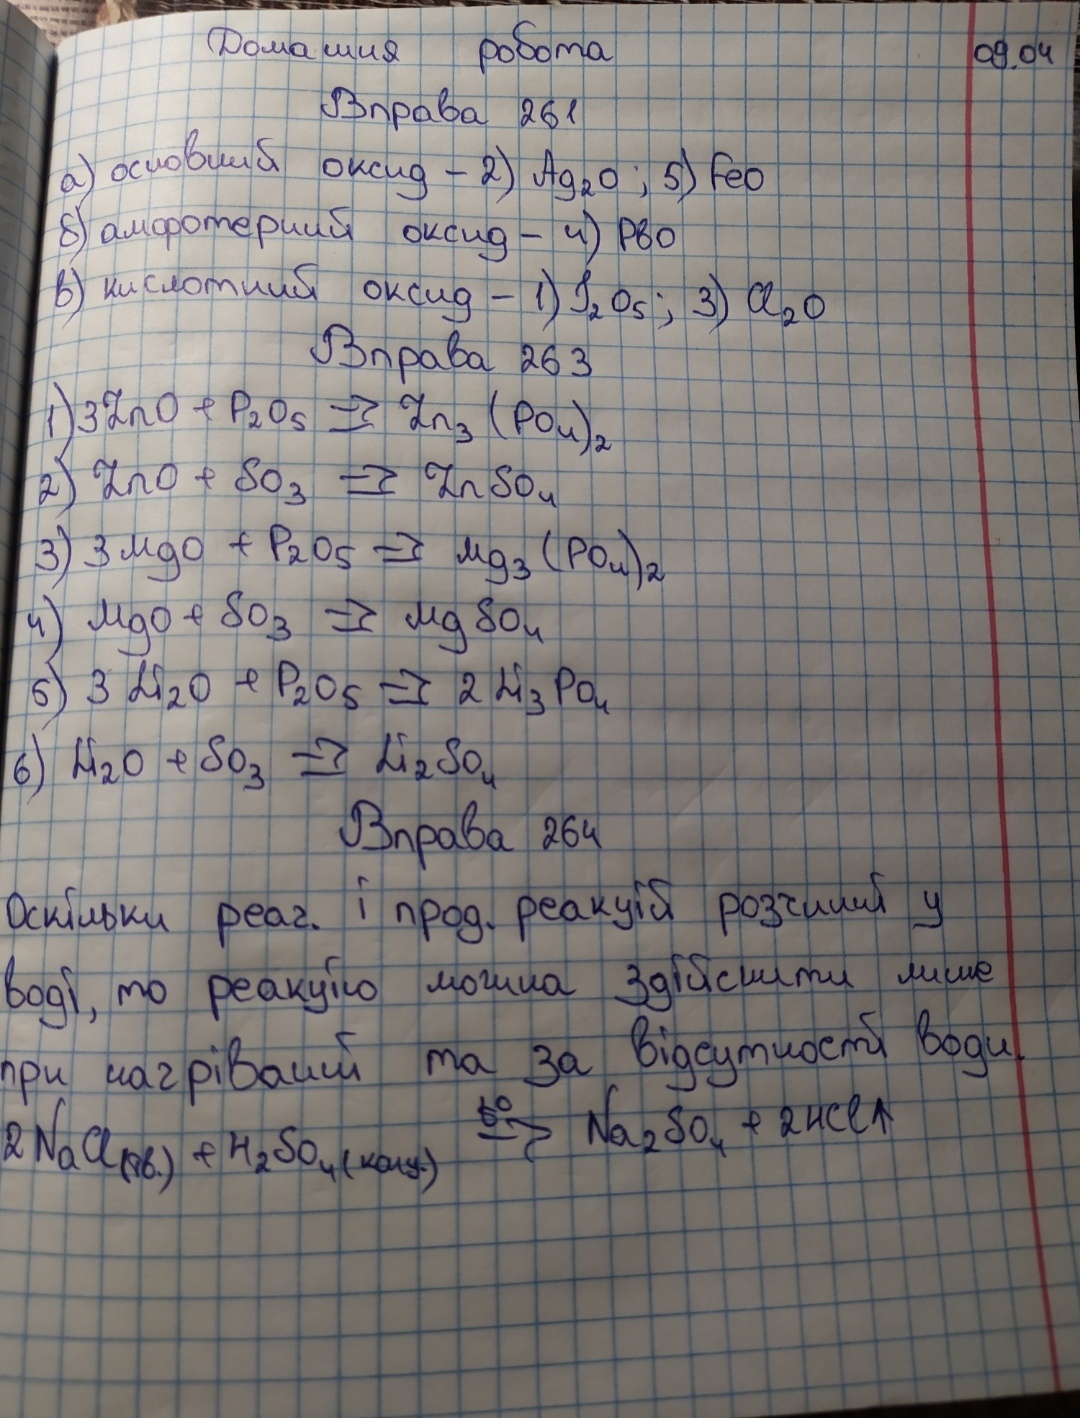 Домашня робота 09.04
Вправа 261
а) основний оксид – 2) Ag₂O; 5) FeO
б) амфотерний оксид – 4) PbO
в) кислотний оксид – 1) I₂O₅; 3) Cl₂O
Вправа 263
1) 3ZnO + P₂O₅ ⇒ Zn₃(PO₄)₂
2) ZnO + SO₃ ⇒ ZnSO₄
3) 3MgO + P₂O₅ ⇒ Mg₃(PO₄)₂
4) MgO + SO₃ ⇒ MgSO₄
5) 3Li₂O + P₂O₅ ⇒ 2Li₃PO₄
6) Li₂O + SO₃ ⇒ Li₂SO₄
Вправа 264
Оскільки реаг. і прод. реакції розчинні у
воді, то реакцію можна здійснити лише
при нагріванні та за відсутності води.
2NaCl(тв.) + H₂SO₄(конц.) t° ⇒ Na₂SO₄ + 2HCl↑